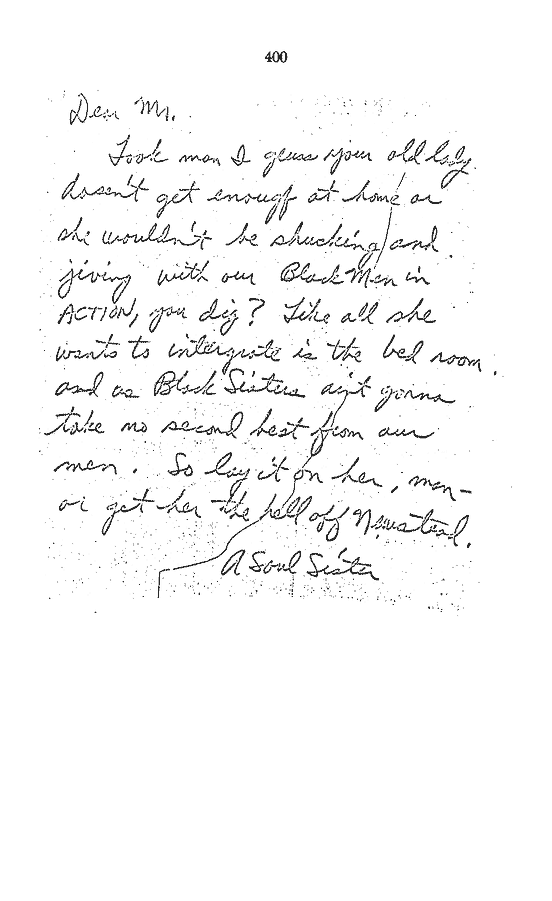 400
Dear Mr.
Look man I geuss your old lady
doesn't get enougf at home or
she wouldn't be shucking and
jiving with our Black Men in
ACTION, you dig? Like all she
wants to intergrate is the bed room.
and us Black Sisters ain't gonna
take no second best from our
men. So lay it on her, man-
or get her the hell off Newstead.
A Soul Sister